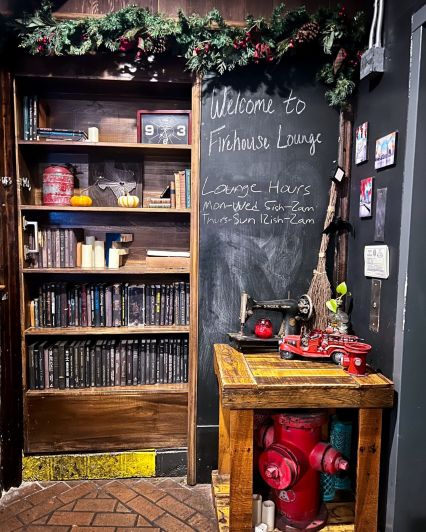 Welcome to
Firehouse Lounge
Lounge Hours
Mon-Wed 5ish-2am
Thurs-Sun 12ish-2am
9 3
SINGER